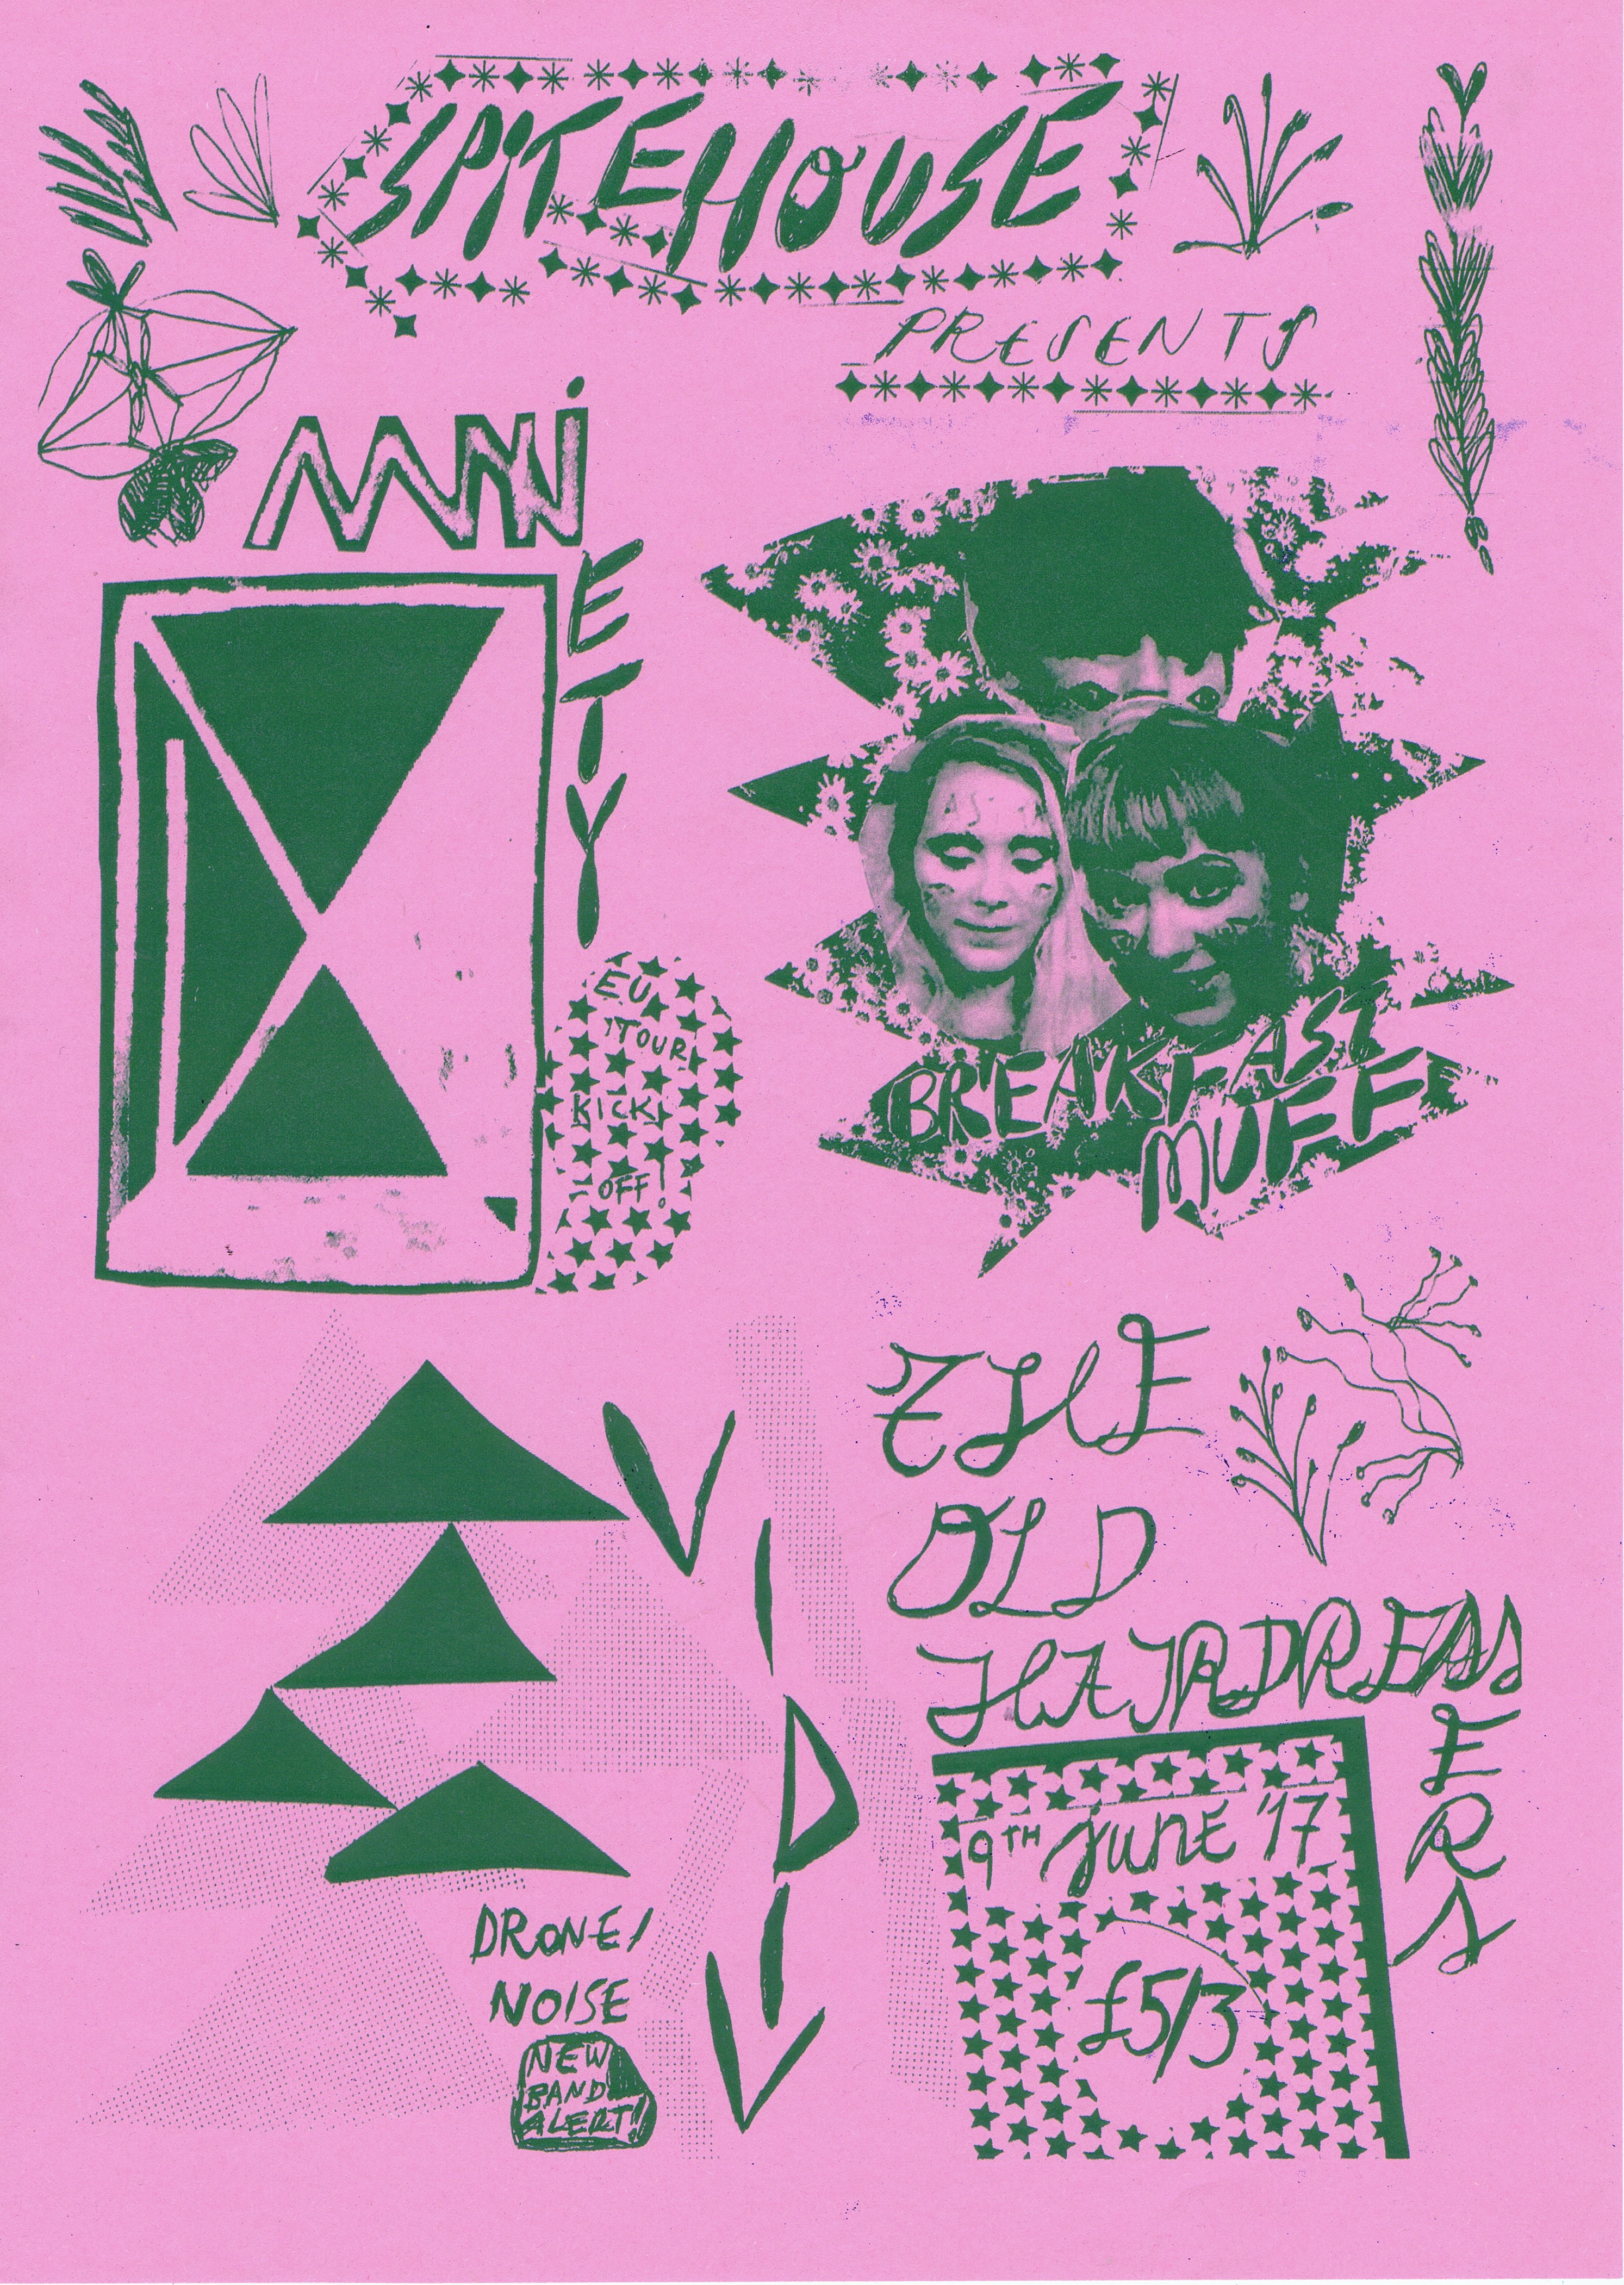 SPITEHOUSE
PRESENTS
ETY
EU
TOUR
KICK
OFF!
BREAKFAST
MUFF
VIDIV
DRONE/
NOISE
NEW
BAND
ALERT!
THE
OLD
HAIRDRESSERS
9TH JUNE '17
£5/3